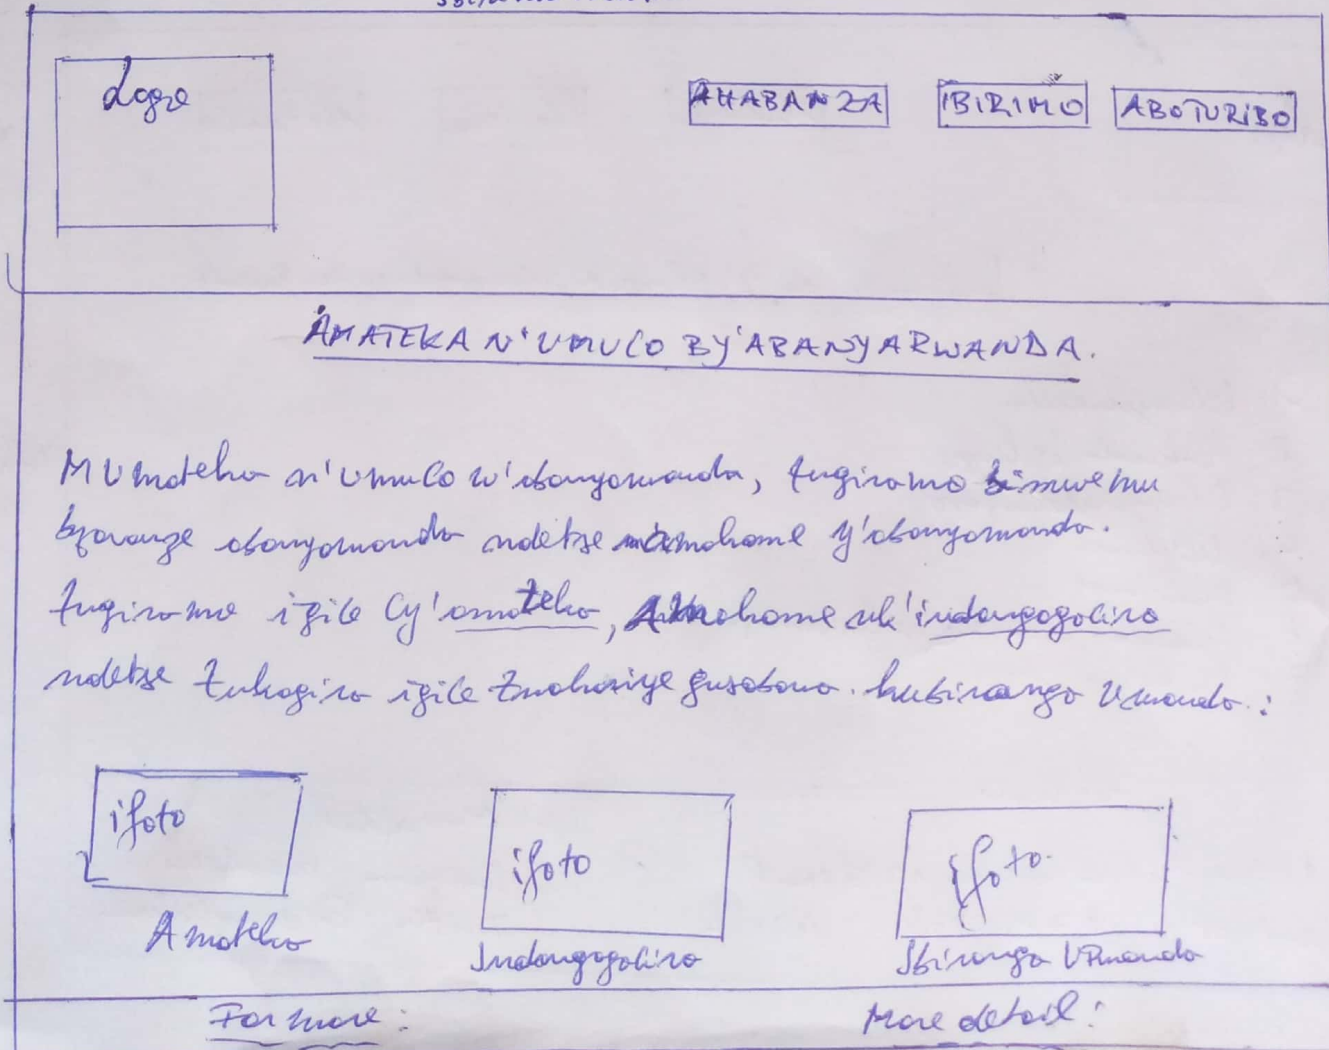 Logo
AHABANZA IBIRIMO ABOTURIBO
AMATEKA N'UMUCO BY'ABANYARWANDA.
MUmateka n'umuco w'abanyarwanda, tugiramo bimwe mu
byaranze abanyarwanda ndetse y'abanyarwanda.
tugiramo igice Cy'amateka, nk'indangagaciro
ndetse tukagira igice gusobona kubirango Urwanda :
ifoto
ifoto
ifoto
Amateka
Indangagaciro
Ibiranga URwanda
For more :
More detail :